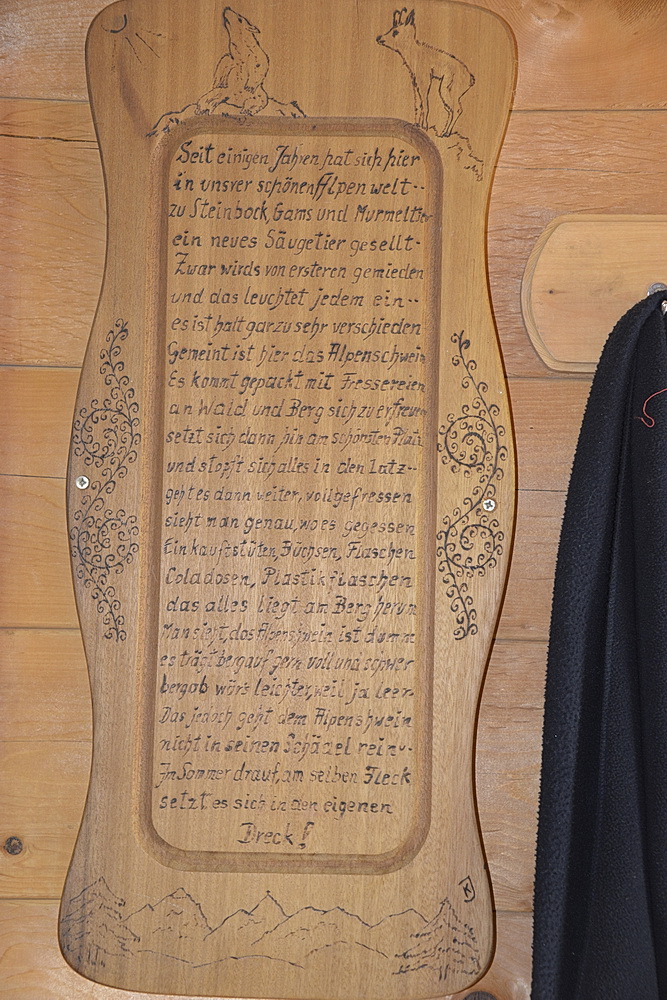 Seit einigen Jahren hat sich hier
in unsrer schönen Alpenwelt--
zu Steinbock, Gams und Murmeltier
ein neues Säugetier gesellt-
Zwar wirds von ersteren gemieden
und das leuchtet jedem ein--
es ist halt gar zu sehr verschieden
Gemeint ist hier das Alpenschwein
Es kommt gepackt mit Fressereien
an Wald und Berg sich zu erfreuen
setzt sich dann hin am schönsten Platz
und stopft sich alles in den Latz-
geht es dann weiter, vollgefressen
sieht man genau, wo es gegessen
Einkaufstüten, Büchsen, Flaschen
Coladosen, Plastikflaschen
das alles liegt am Berg herum
Man sieht, das Alpenshwein ist dumm
es trägt bergauf gern voll und schwer
bergab wärs leichter, weil ja leer-
Das jedoch geht dem Alpenshwein
nicht in seinen Schädel rein--
Im Sommer drauf, am selben Fleck
setzt es sich in den eigenen
Dreck!
K